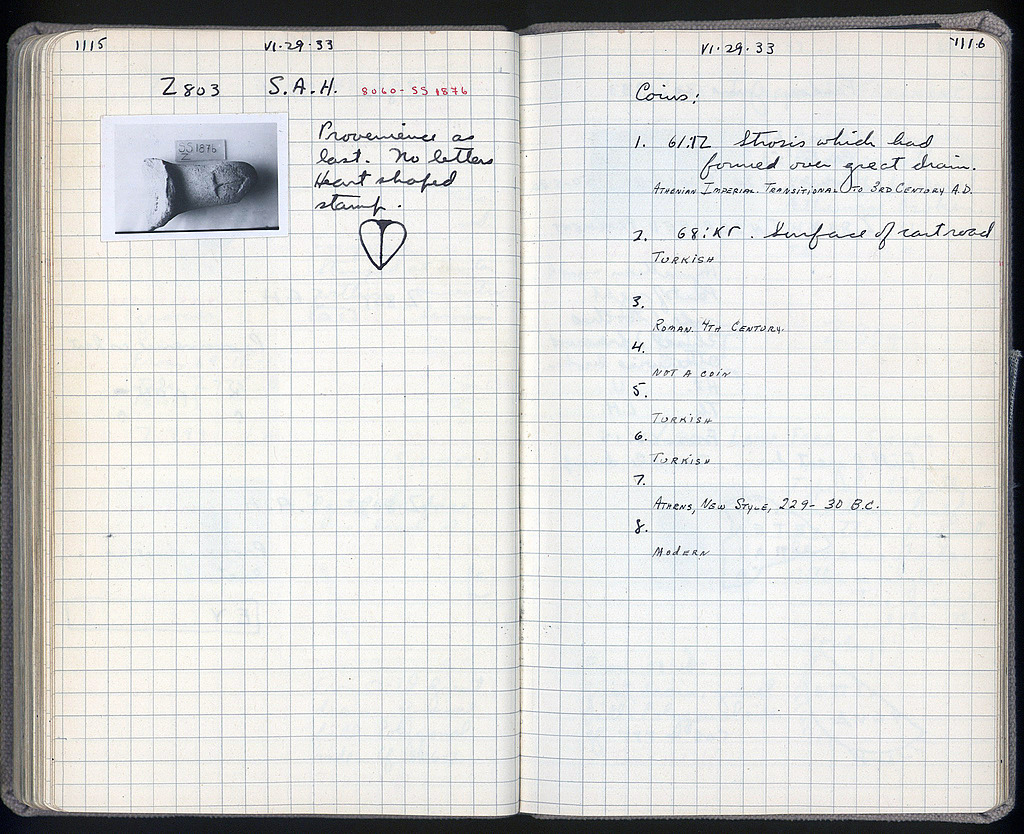 1115
VI·29·33
Z803 S.A.H. 8060-SS 1876
SS 1876
Z
Provenience as
last. No letters
Heart shaped
stamp.
VI·29·33
1116
Coins:
1. 61:ΙΖ Strosis which had
formed over great drain.
ATHENIAN IMPERIAL. TRANSITIONAL TO 3RD CENTURY A.D.
2. 68:ΚΓ. Surface of cart road
TURKISH
3.
ROMAN. 4TH CENTURY.
4.
NOT A COIN
5.
TURKISH
6.
TURKISH
7.
ATHENS, NEW STYLE, 229- 30 B.C.
8.
MODERN